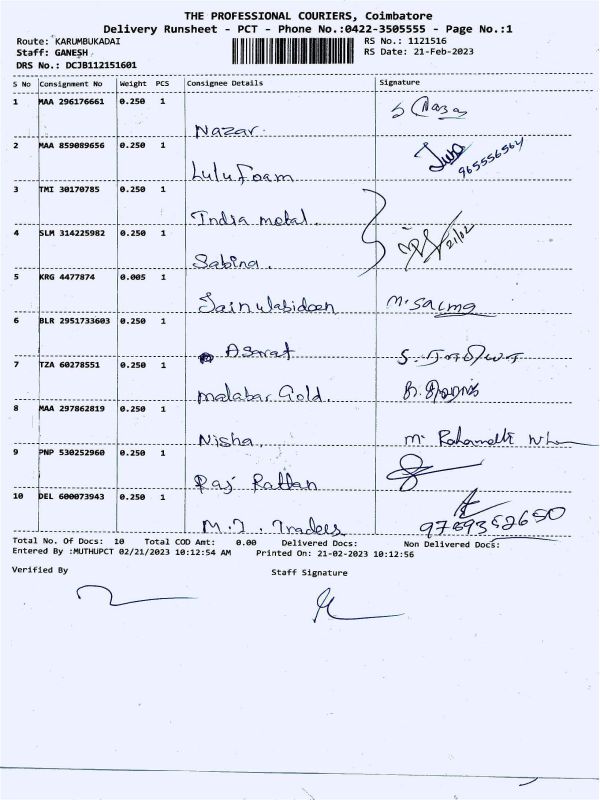 THE PROFESSIONAL COURIERS, Coimbatore
Delivery Runsheet - PCT - Phone No.:0422-3505555 - Page No.:1
Route: KARUMBUKADAI
RS No.: 1121516
Staff: GANESH
RS Date: 21-Feb-2023
DRS No.: DCJB112151601
S No Consignment No Weight PCS Consignee Details Signature
1 MAA 296176661 0.250 1
Nazar
2 MAA 859089656 0.250 1
965556564
Lulu Foam
3 TMI 30170785 0.250 1
India metal.
4 SLM 314225982 0.250 1
21/02
Sabina.
5 KRG 4477874 0.005 1
Jainulabideen M. Salma
6 BLR 2951733603 0.250 1
Asarat
7 TZA 60278551 0.250 1
Malabar Gold.
8 MAA 297862819 0.250 1
Nisha, M.
9 PNP 530252960 0.250 1
Raj Rattan
10 DEL 600073943 0.250 1
M.J. Traders
Total No. Of Docs: 10 Total COD Amt: 0.00 Delivered Docs: Non Delivered Docs:
Entered By :MUTHUPCT 02/21/2023 10:12:54 AM Printed On: 21-02-2023 10:12:56
Verified By Staff Signature